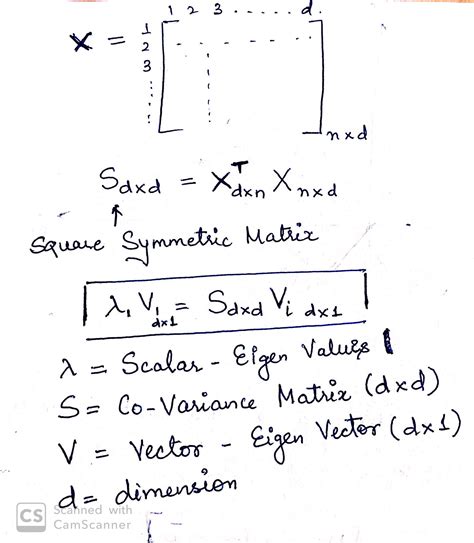 1 2 3 ..... d.
X = 1
2
3
n x d
S_dxd = X^T_dxn X_nxd
↑
Square Symmetric Matrix
λ₁ V₁ dx1 = S_dxd V_i dx1
λ = Scalar - Eigen Values
S = Co-Variance Matrix (dxd)
V = Vector - Eigen Vector (dx1)
d = dimension
CS Scanned with
CamScanner